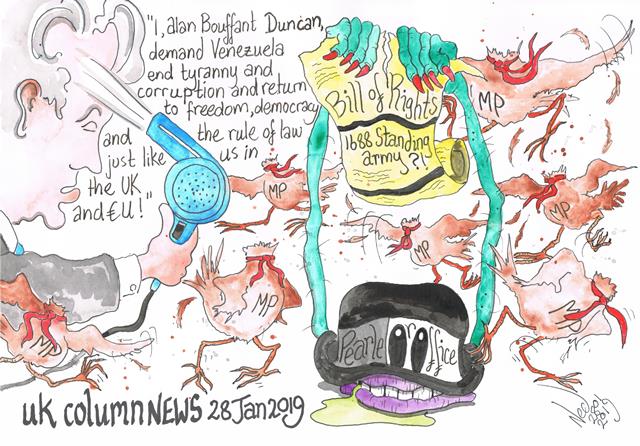 "I, alan Bouffant Duncan,
demand Venezuela
end tyranny and
corruption and return
to freedom, democracy
and the rule of law
just like us in
the UK
and €U!"
Bill of Rights
1688 Standing
army?!
MP
MP
MP
MP
MP
MP
MP
Pearle or office
uk column NEWS 28 Jan 2019